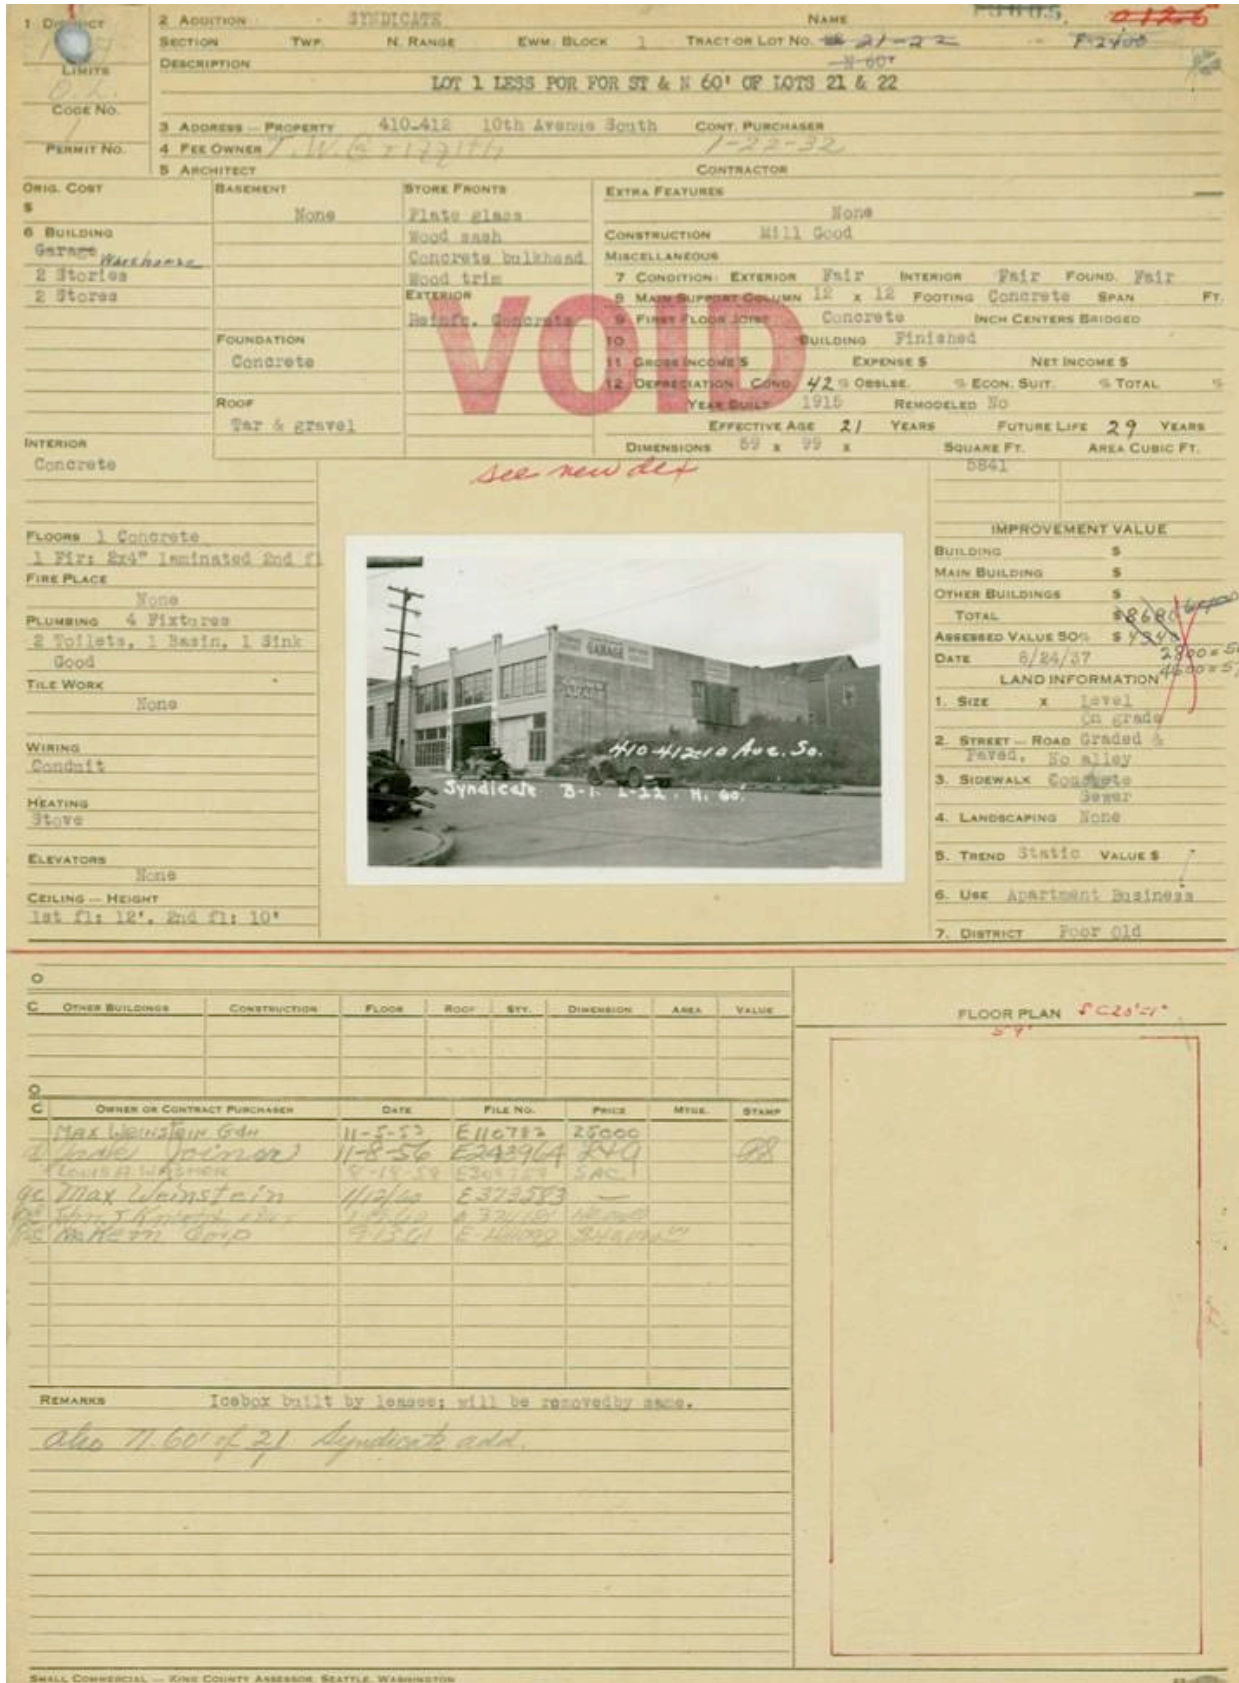 1 DISTRICT
2 ADDITION SYNDICATE NAME
SECTION TWP. N. RANGE EWM. BLOCK 1 TRACT OR LOT NO. 21-22 F-2400
LIMITS
DESCRIPTION N 60'
LOT 1 LESS POR FOR ST & N 60' OF LOTS 21 & 22
CODE NO.
3 ADDRESS — PROPERTY 410-412 10th Avenue South CONT. PURCHASER
PERMIT NO. 4 FEE OWNER T. W. Griffith 1-22-32
5 ARCHITECT CONTRACTOR
ORIG. COST
$
6 BUILDING
Garage Warehouse
2 Stories
2 Stores
BASEMENT
None
FOUNDATION
Concrete
ROOF
Tar & gravel
STORE FRONTS
Plate glass
Wood sash
Concrete bulkhead
Wood trim
EXTERIOR
Reinfc. Concrete
VOID
EXTRA FEATURES
None
CONSTRUCTION Mill Good
MISCELLANEOUS
7 CONDITION: EXTERIOR Fair INTERIOR Fair FOUND. Fair
8 MAIN SUPPORT COLUMN 12 x 12 FOOTING Concrete SPAN FT.
9 FIRST FLOOR JOIST Concrete INCH CENTERS BRIDGED
10 BUILDING Finished
11 GROSS INCOME $ EXPENSE $ NET INCOME $
12 DEPRECIATION: COND. 42 % OBSLSE. % ECON. SUIT. % TOTAL %
YEAR BUILT REMODELED No
EFFECTIVE AGE 21 YEARS FUTURE LIFE 29 YEARS
DIMENSIONS 59 x 99 x SQUARE FT. AREA CUBIC FT.
5841
INTERIOR
Concrete
see new dex
FLOORS 1 Concrete
1 Fir: 2x4" laminated 2nd fl
FIRE PLACE
None
PLUMBING 4 Fixtures
2 Toilets, 1 Basin, 1 Sink
Good
TILE WORK
None
WIRING
Conduit
HEATING
Stove
ELEVATORS
None
CEILING — HEIGHT
1st fl: 12', 2nd fl: 10'
GARAGE
410-412-10 Ave. So.
Syndicate B-1. L-22. N. 60'.
IMPROVEMENT VALUE
BUILDING $
MAIN BUILDING $
OTHER BUILDINGS $
TOTAL $ 8680
ASSESSED VALUE 50% $ 4340
DATE 8/24/37
LAND INFORMATION
1. SIZE x Level
On grade
2. STREET — ROAD Graded &
Paved. No alley
3. SIDEWALK Concrete
Sewer
4. LANDSCAPING None
5. TREND Static VALUE $
6. USE Apartment Business
7. DISTRICT Poor Old
O
C OTHER BUILDINGS CONSTRUCTION FLOOR ROOF STY. DIMENSION AREA VALUE
FLOOR PLAN
59'
O
C OWNER OR CONTRACT PURCHASER DATE FILE NO. PRICE MTGE. STAMP
Max Weinstein Gdn 11-5-53 E110782 25000
Joiner 11-8-56 E243964
Max Weinstein 1/12/60 E373583 —
Corp
REMARKS Icebox built by lessee; will be removedby same.
also N. 60' of 21 Syndicate add.
SMALL COMMERCIAL — KING COUNTY ASSESSOR, SEATTLE, WASHINGTON